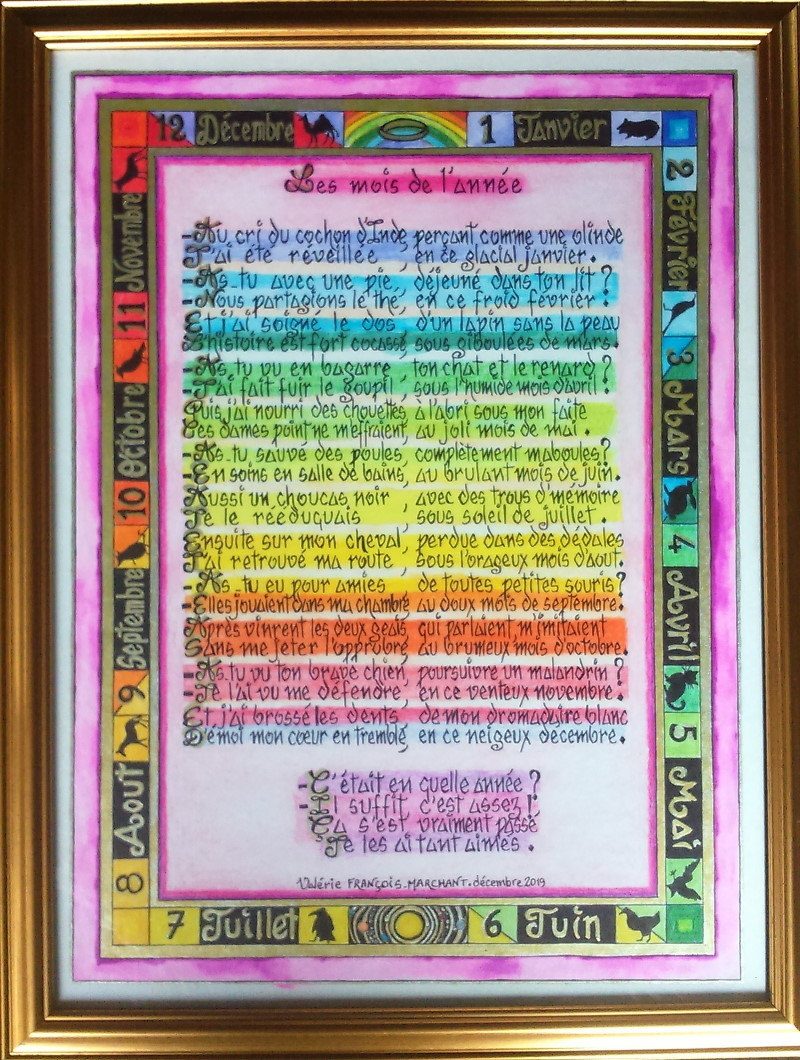 12 Décembre
1 Janvier
2 Février
3 Mars
4 Avril
5 Mai
6 Juin
7 Juillet
8 Aout
9 Septembre
10 Octobre
11 Novembre
Les mois de l'année
-Au cri du cochon d'Inde, perçant comme une olinde
J'ai été réveillée, en ce glacial janvier.
-As-tu avec une pie, déjeuné dans ton lit ?
-Nous partagions le thé, en ce froid février !
Et j'ai soigné le dos, d'un lapin sans la peau
L'histoire est fort cocasse, sous giboulées de mars.
-As-tu vu en bagarre, ton chat et le renard ?
-J'ai fait fuir le goupil, sous l'humide mois d'avril !
Puis j'ai nourri des chouettes, à l'abri sous mon faîte
Ces dames point ne m'effraient, au joli mois de mai.
-As-tu sauvé des poules, complètement maboules ?
-En soins en salle de bains, au brulant mois de juin.
Aussi un choucas noir, avec des trous d'mémoire
Je le rééduquais sous soleil de juillet.
Ensuite sur mon cheval, perdue dans des dédales
J'ai retrouvé ma route, sous l'orageux mois d'aout.
-As-tu eu pour amies de toutes petites souris ?
-Elles jouaient dans ma chambre au doux mois de septembre.
Après vinrent les deux geais, qui parlaient, m'imitaient
Sans me jeter l'opprobre, au brumeux mois d'octobre.
-As-tu vu ton brave chien, poursuivre un malandrin ?
-Je l'ai vu me défendre, en ce venteux novembre.
Et j'ai brossé les dents, de mon dromadaire blanc
D'émoi mon cœur en tremble, en ce neigeux décembre.
-C'était en quelle année ?
-Il suffit, c'est assez !
Ça s'est vraiment passé
Je les ai tant aimés.
Valérie FRANÇOIS-MARCHANT. décembre 2019